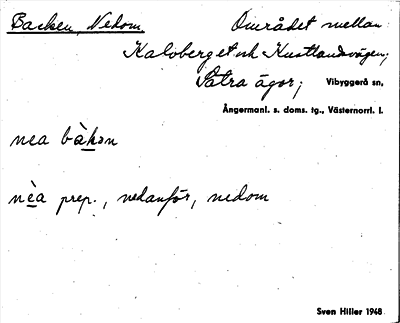 Backen, Nedom. Området mellan
Kalvberget och Kustlandsvägen;
Sätra ägor; Vibyggerå sn,
Ångermanl. s. doms. tg., Västernorrl. l.
nea bàkən
nèa prep., nedanför, nedom
Sven Hiller 1948